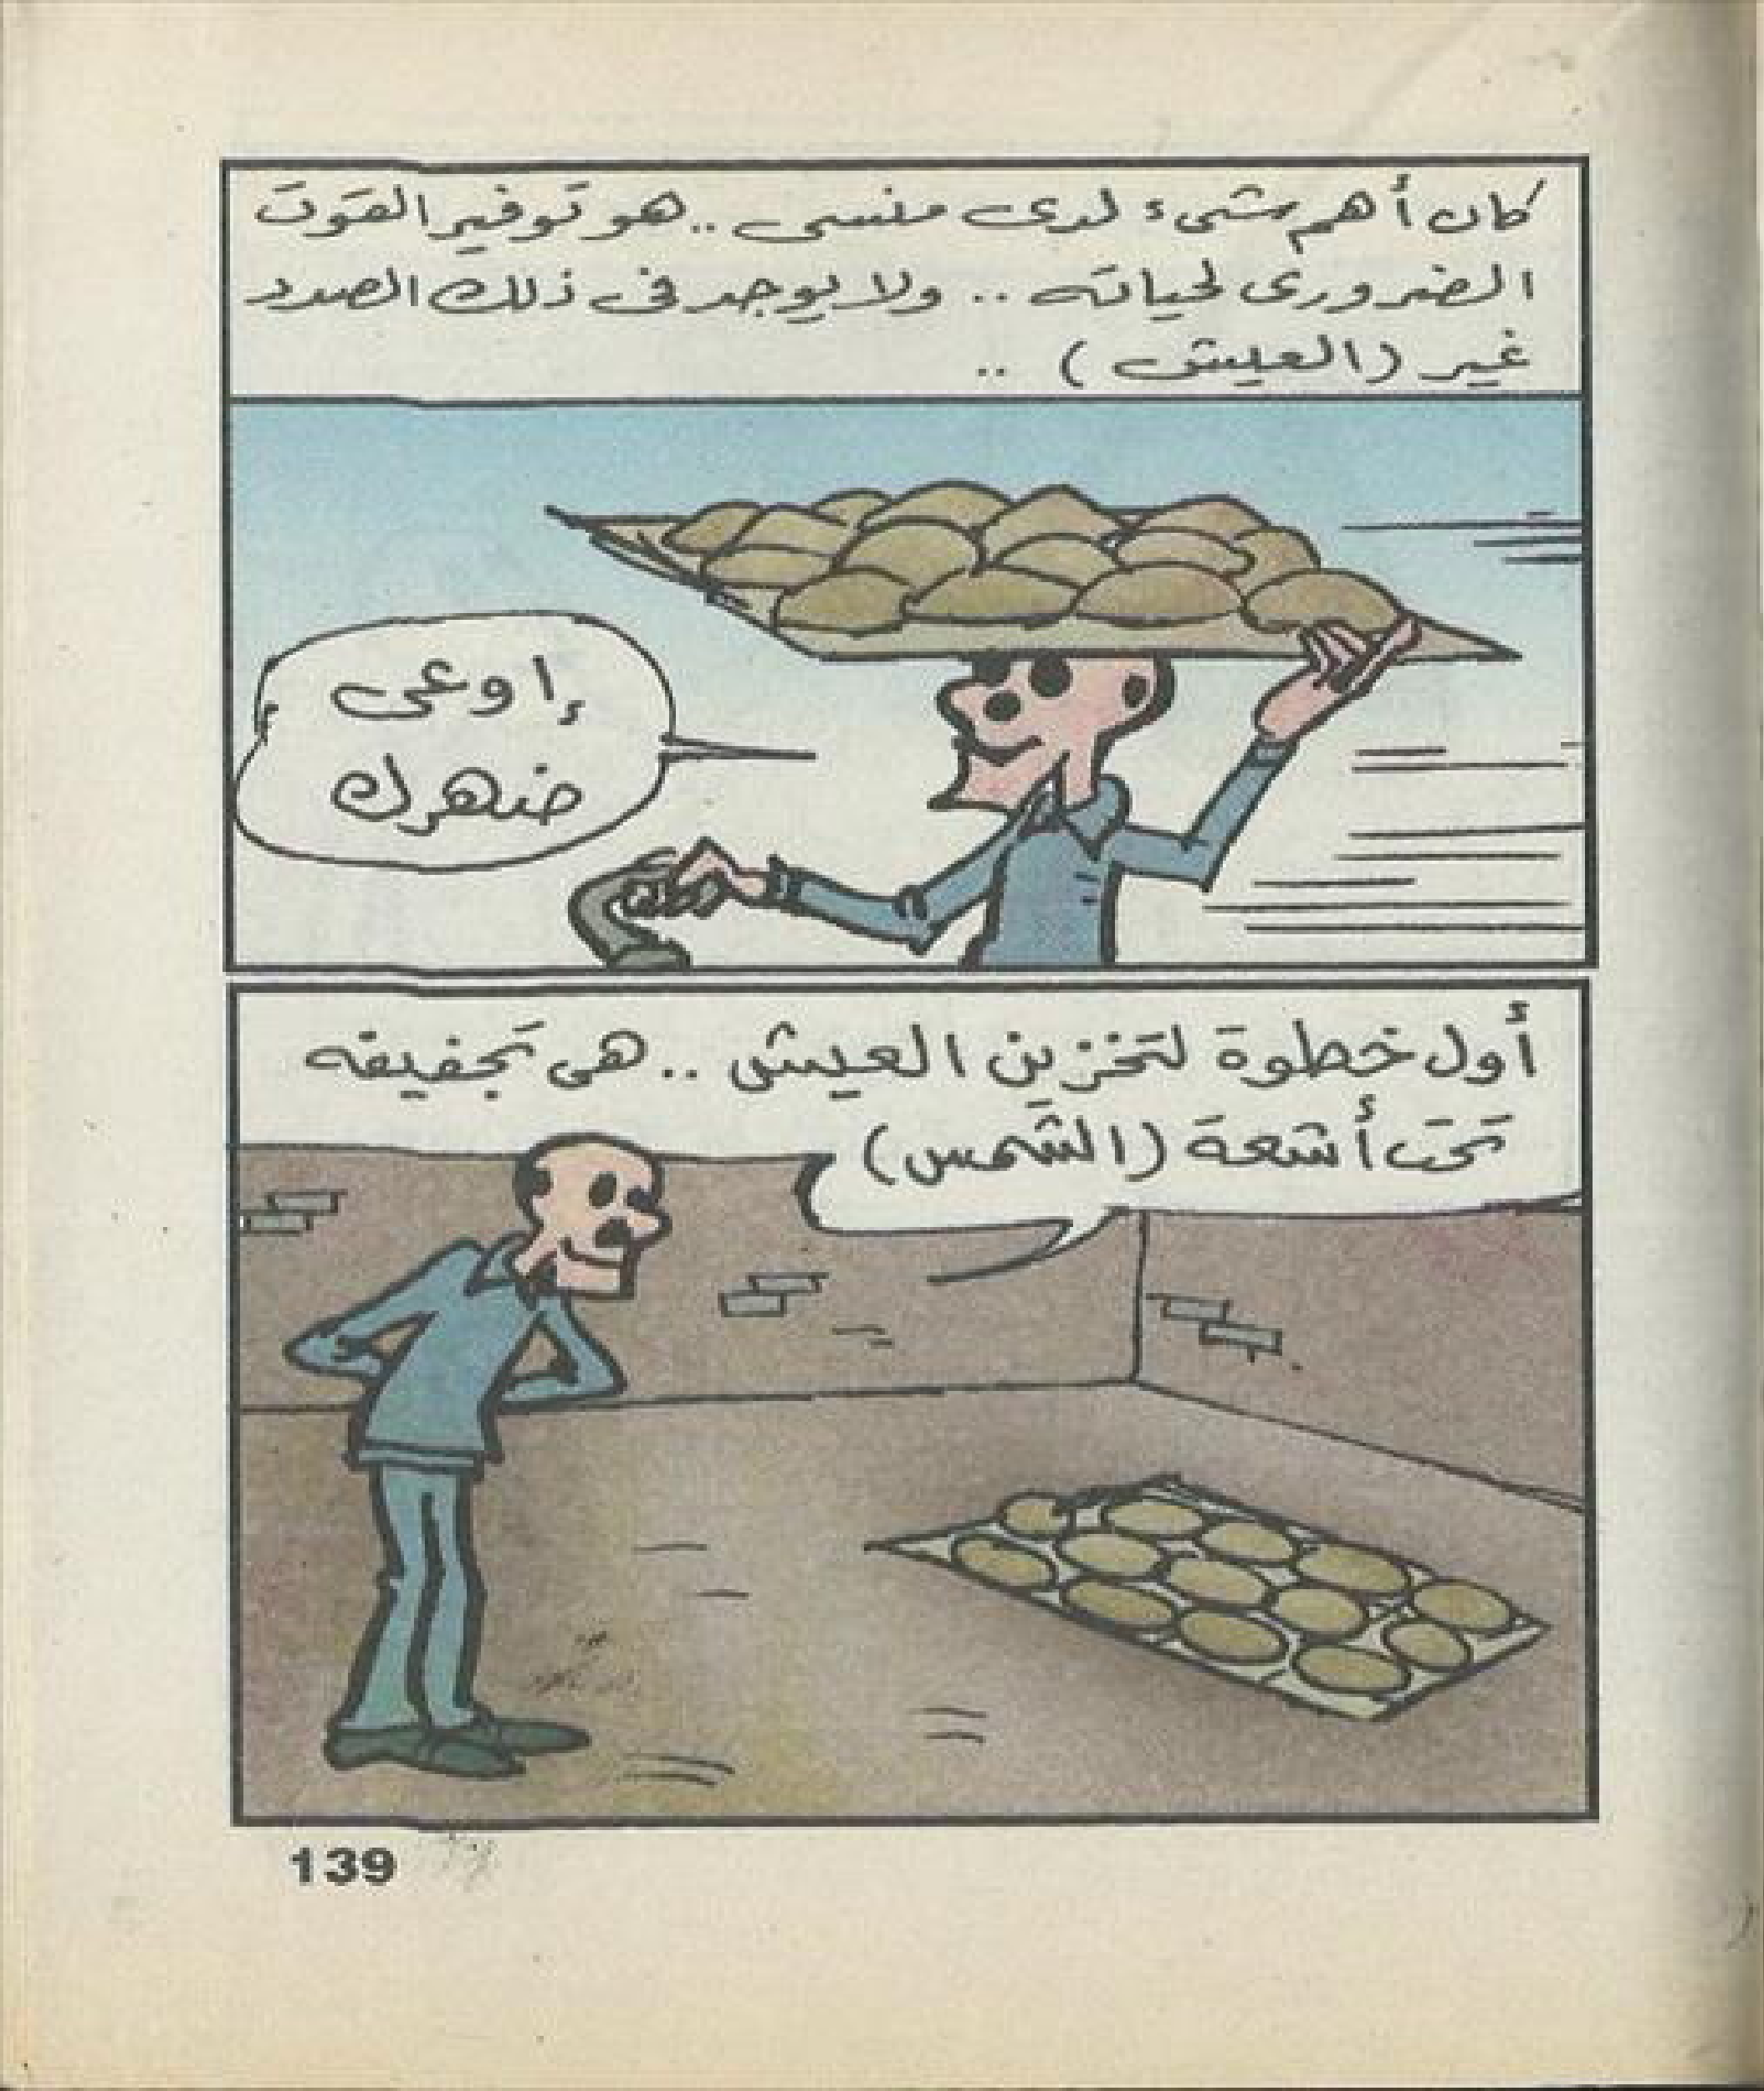 كان أهم شىء لدى منسى .. هو توفير القوت
الضرورى لحياته .. ولا يوجد فى ذلك الصدد
غير (العيش) ..
إوعى
ضهرك
أول خطوة لتخزين العيش .. هى تجفيفه
تحت أشعة (الشمس)
139